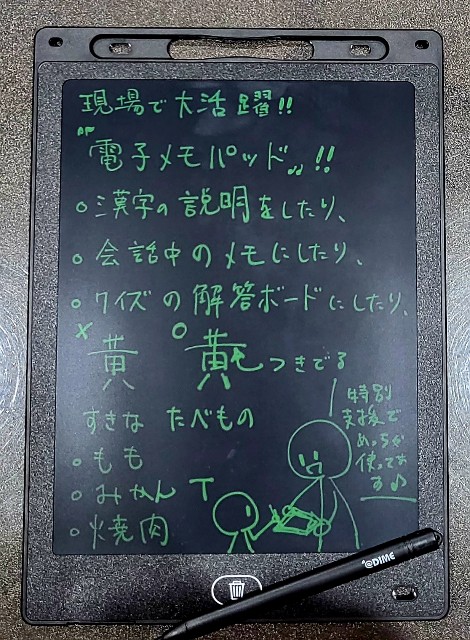 現場で大活躍!!
"電子メモパッド"!!
○漢字の説明をしたり、
○会話中のメモにしたり、
○クイズの解答ボードにしたり、
× ○
黄 黄 つきでる
すきな たべもの
○もも
○みかん T
○焼肉
特別
支援で
めっちゃ
使ってま
す♪
@DIME